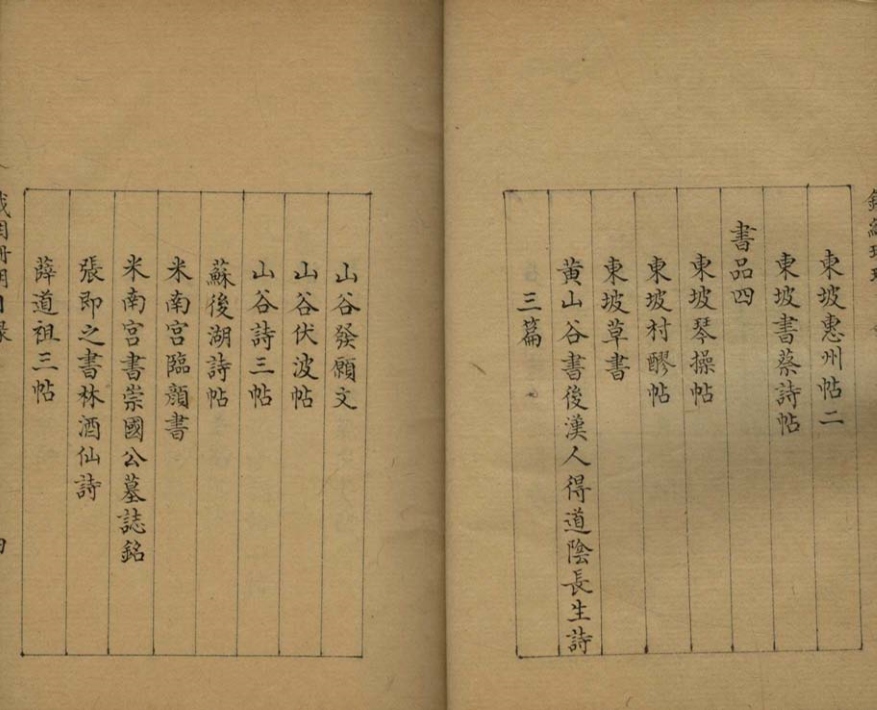 東坡惠州帖二
東坡書蔡詩帖
書品四
東坡琴操帖
東坡村醪帖
東坡草書
黄山谷書後漢人得道陰長生詩
三篇
山谷發願文
山谷伏波帖
山谷詩三帖
蘇後湖詩帖
米南宮臨顔書
米南宮書崇國公墓誌銘
張即之書林酒仙詩
薛道祖三帖